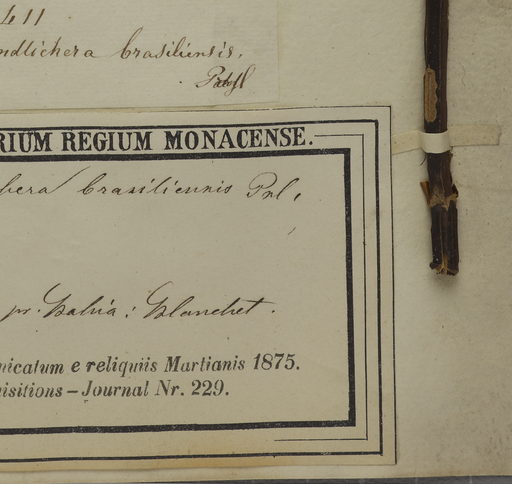 411
ndlichera brasiliensis.
RIUM REGIUM MONACENSE.
hera brasiliennis Prl,
pr. Bahia: Blanchet.
nicatum e reliquiis Martianis 1875.
isitions – Journal Nr. 229.